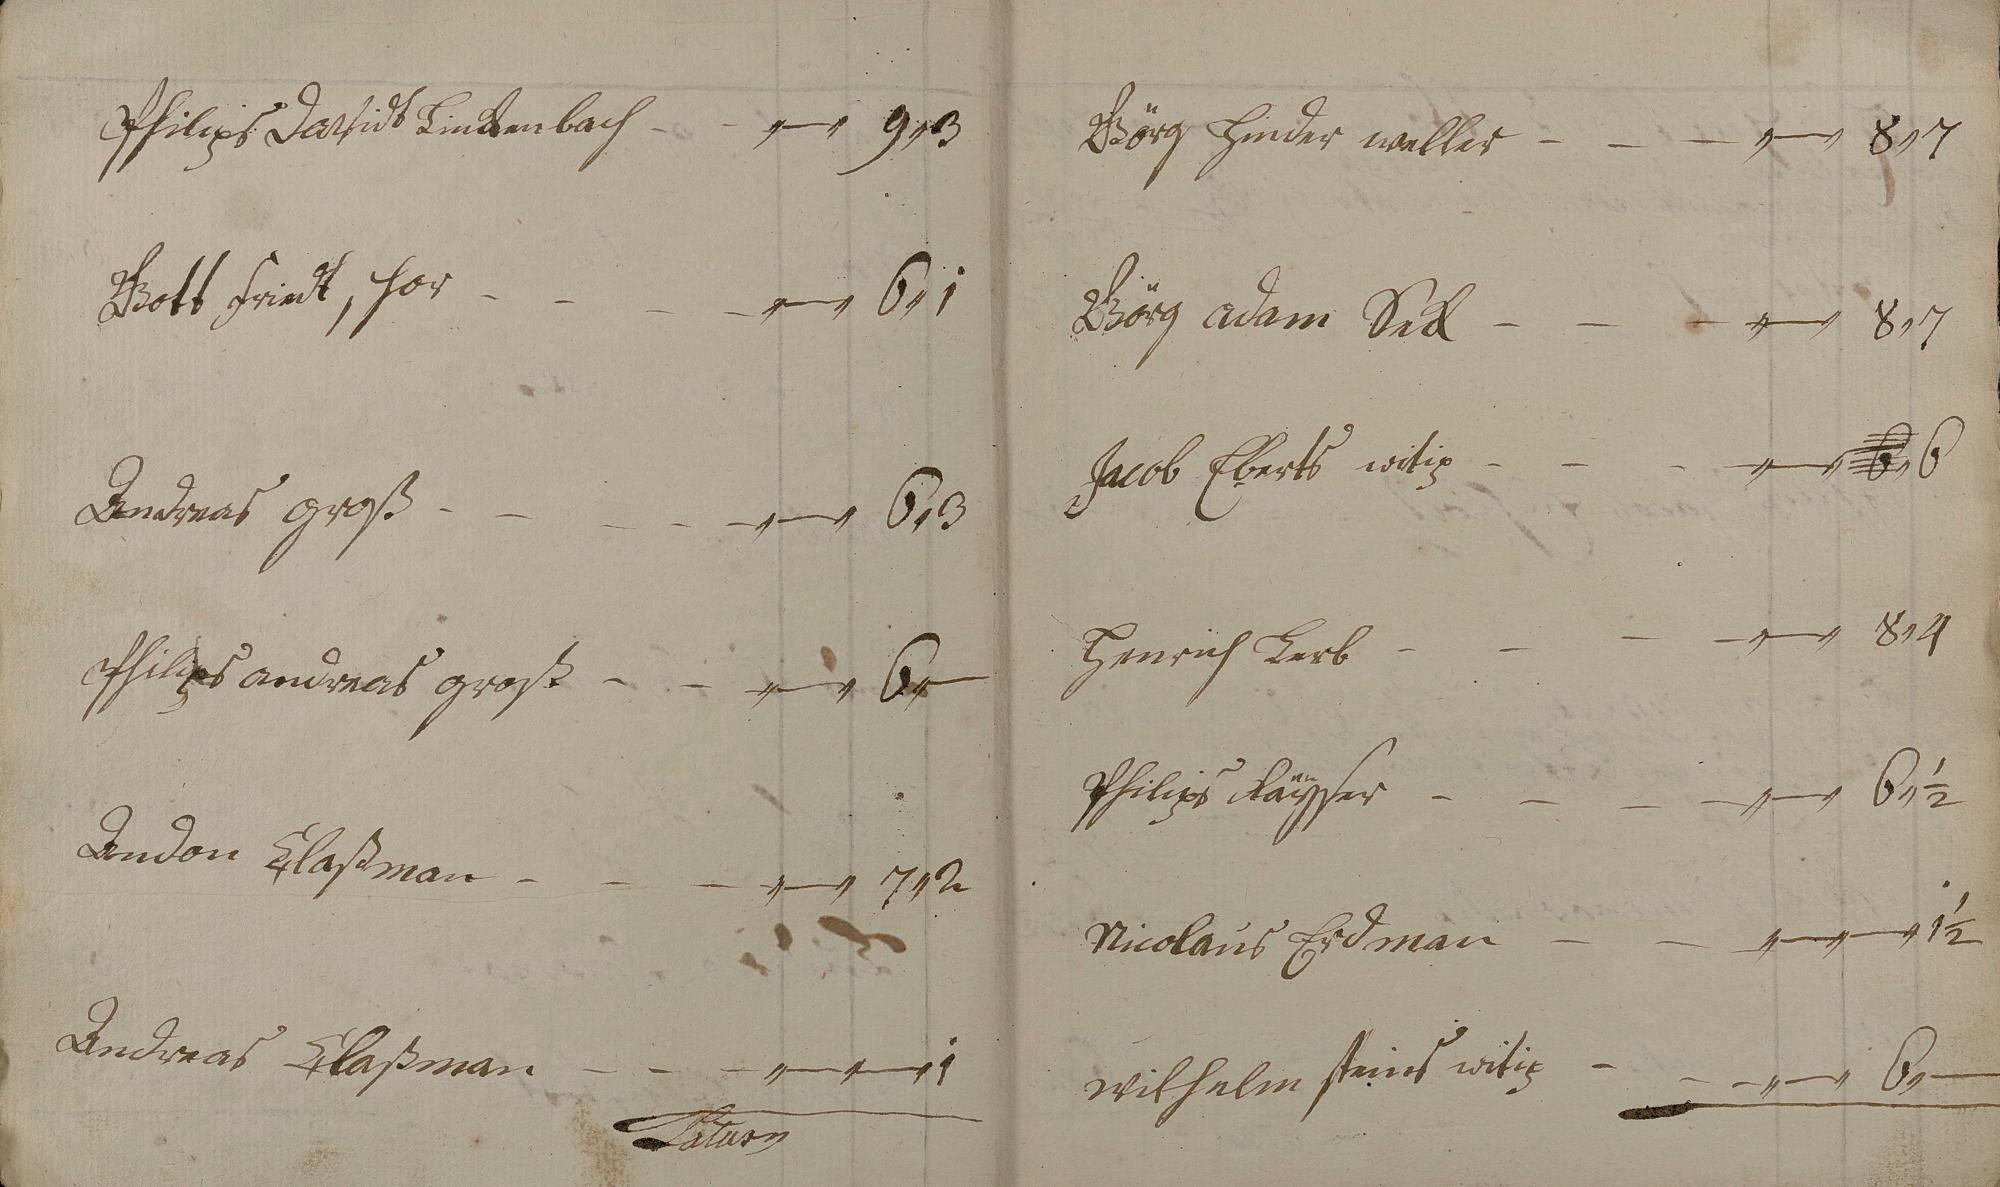 Philips Davidt Linckenbach - - " — " 9 " 3
Gott friedt, hor - - - - " — " 6 " 1
Andreas groß - - - - - " — " 6 " 3
Philips andreas groß - - " — " 6 " —
Andon Claßman - - - " — " 7 " 2
Andreas Claßman - - - " — " — " 1
Latus
Görg Hinder weller - - - " — " 8 " 7
Görg adam Seck - - - " — " 8 " 7
Jacob Eberts witip - - - " — " 6 " 6
Henrich Lerb - - - - " — " 8 " 4
Philips Kaÿsser - - - - " — " 6 " ½
Nicolaus Erdman - - " — " — " 1½
Wilhelm steins witip - - - " — " 6 " —